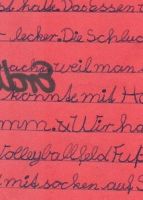 st halt. Das essen w
lecker. Die Schluc
nacht weil man
konnte mit Ho
mm. & Wir ha
Volleyballfeld Fuß
mit socken auf S